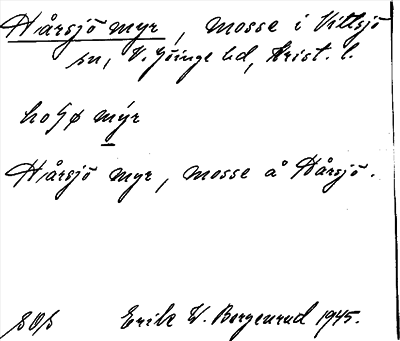 Hårsjö myr, mosse i Vittsjö
sn, V. Göinge hd, Krist. l.
Hårsjö myr, mosse å Hårsjö.
Erik W. Bergenrud 1945.